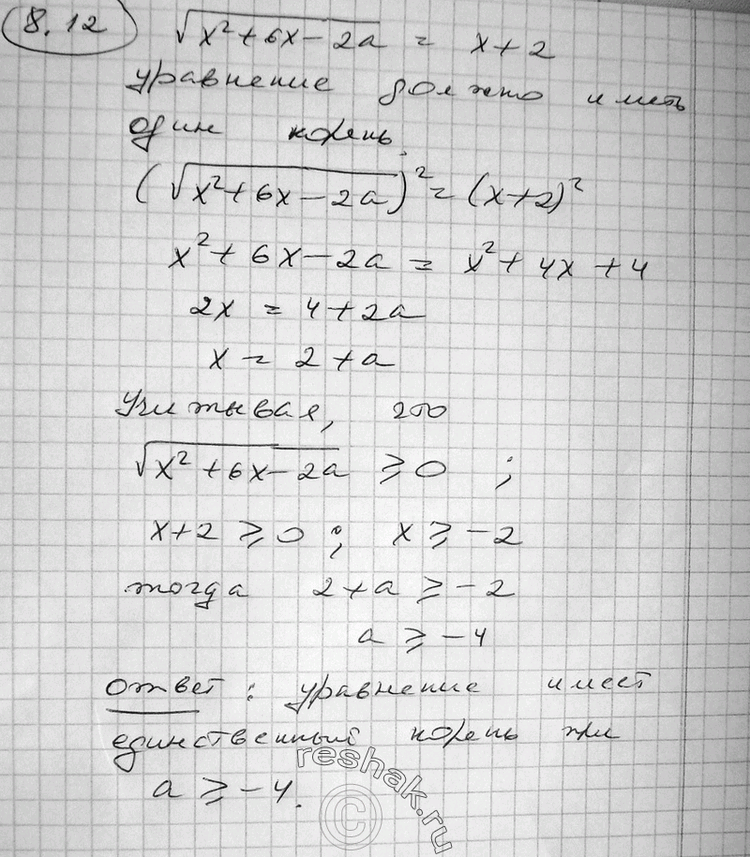 8.12 √(x² + 6x - 2a) = x + 2
уравнение должно иметь
один корень.
(√(x² + 6x - 2a))² = (x+2)²
x² + 6x - 2a = x² + 4x + 4
2x = 4 + 2a
x = 2 + a
Учитывая, что
√(x² + 6x - 2a) ⩾ 0 ;
x+2 ⩾ 0 ; x ⩾ -2
тогда 2+a ⩾ -2
a ⩾ -4
Ответ : уравнение имеет
единственный корень при
a ⩾ -4.
reshak.ru
©